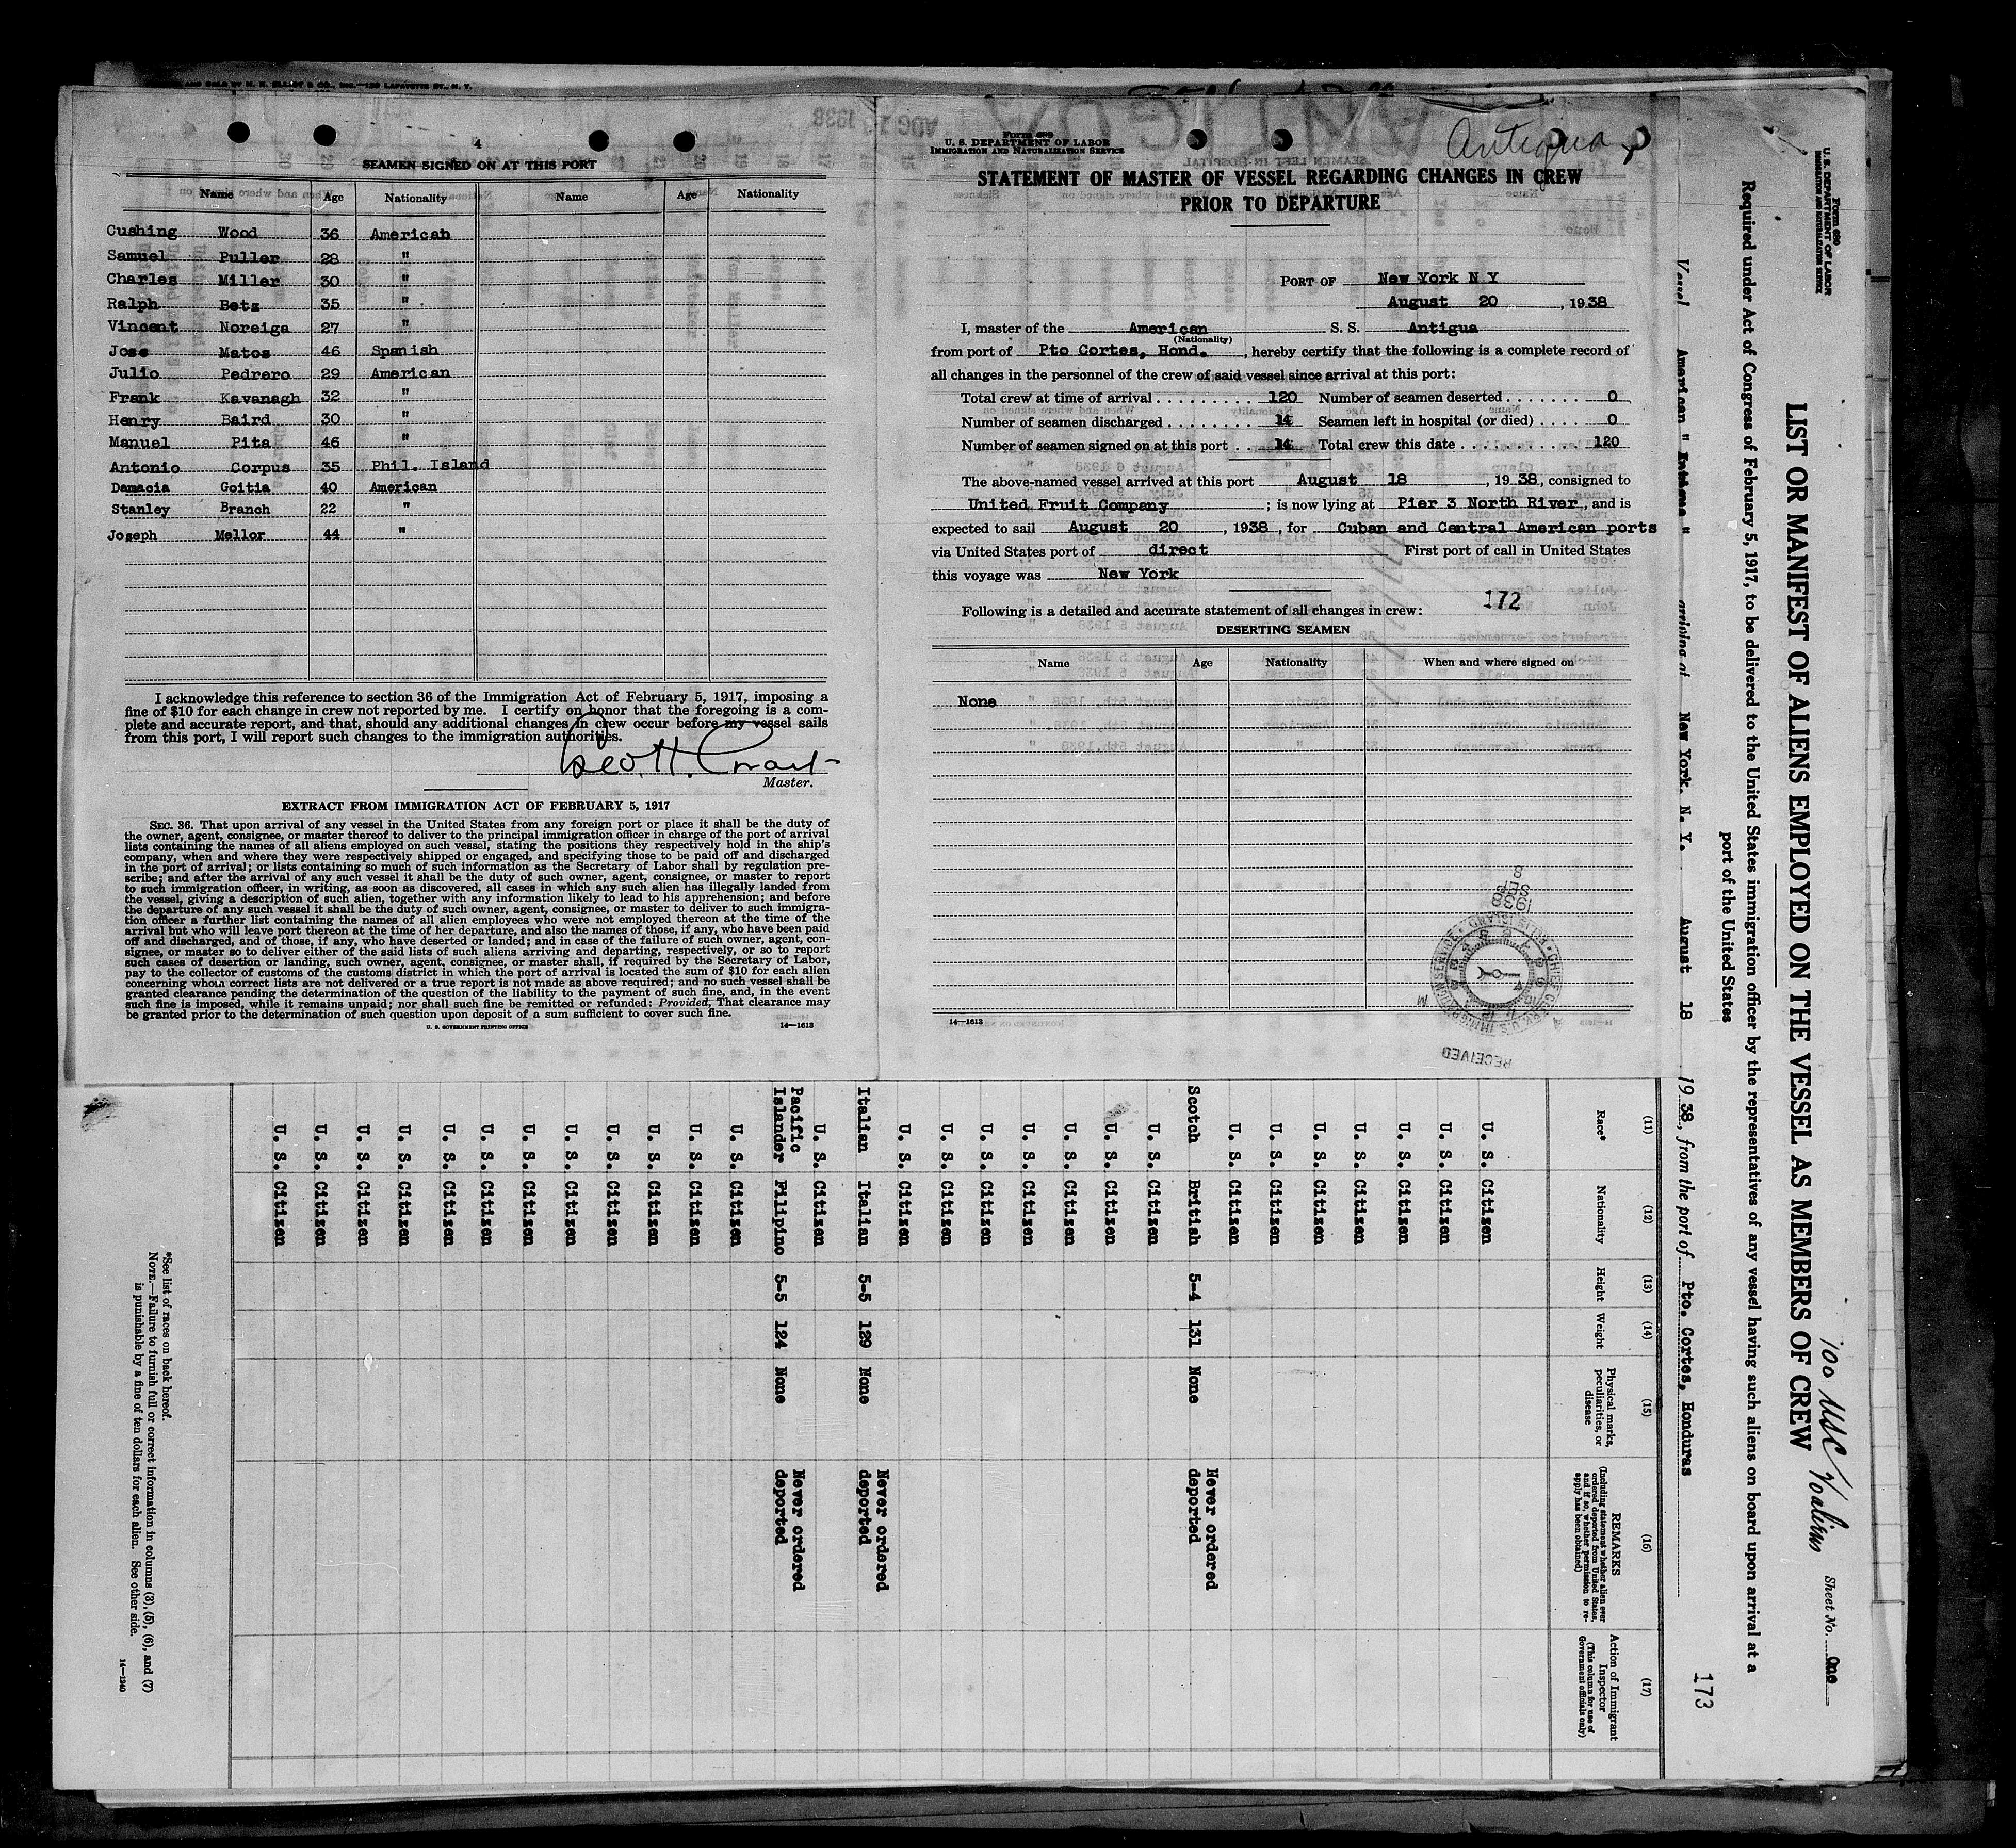 AND SOLD BY
CO., INC.—129 LAFAYETTE ST., N. Y.
4
SEAMEN SIGNED ON AT THIS PORT
Name Age Nationality Name Age Nationality
Cushing Wood 36 American
Samuel Puller 28 "
Charles Miller 30 "
Ralph Betz 35 "
Vincent Noreiga 27 "
Jose Matos 46 Spanish
Julio Pedrero 29 American
Frank Kavanagh 32 "
Henry Baird 30 "
Manuel Pita 46 "
Antonio Corpus 35 Phil. Island
Damacia Goitia 40 American
Stanley Branch 22 "
Joseph Mellor 44 "
I acknowledge this reference to section 36 of the Immigration Act of February 5, 1917, imposing a
fine of $10 for each change in crew not reported by me. I certify on honor that the foregoing is a com-
plete and accurate report, and that, should any additional changes in crew occur before my vessel sails
from this port, I will report such changes to the immigration authorities.
Geo. H. Grant
Master.
EXTRACT FROM IMMIGRATION ACT OF FEBRUARY 5, 1917
SEC. 36. That upon arrival of any vessel in the United States from any foreign port or place it shall be the duty of
the owner, agent, consignee, or master thereof to deliver to the principal immigration officer in charge of the port of arrival
lists containing the names of all aliens employed on such vessel, stating the positions they respectively hold in the ship's
company, when and where they were respectively shipped or engaged, and specifying those to be paid off and discharged
in the port of arrival; or lists containing so much of such information as the Secretary of Labor shall by regulation pre-
scribe; and after the arrival of any such vessel it shall be the duty of such owner, agent, consignee, or master to report
to such immigration officer, in writing, as soon as discovered, all cases in which any such alien has illegally landed from
the vessel, giving a description of such alien, together with any information likely to lead to his apprehension; and before
the departure of any such vessel it shall be the duty of such owner, agent, consignee, or master to deliver to such immigra-
tion officer a further list containing the names of all alien employees who were not employed thereon at the time of the
arrival but who will leave port thereon at the time of her departure, and also the names of those, if any, who have been paid
off and discharged, and of those, if any, who have deserted or landed; and in case of the failure of such owner, agent, con-
signee, or master so to deliver either of the said lists of such aliens arriving and departing, respectively, or so to report
such cases of desertion or landing, such owner, agent, consignee, or master shall, if required by the Secretary of Labor,
pay to the collector of customs of the customs district in which the port of arrival is located the sum of $10 for each alien
concerning whom correct lists are not delivered or a true report is not made as above required; and no such vessel shall be
granted clearance pending the determination of the question of the liability to the payment of such fine, and, in the event
such fine is imposed, while it remains unpaid; nor shall such fine be remitted or refunded: Provided, That clearance may
be granted prior to the determination of such question upon deposit of a sum sufficient to cover such fine.
U. S. GOVERNMENT PRINTING OFFICE 14—1613
Form 689
U. S. DEPARTMENT OF LABOR
IMMIGRATION AND NATURALIZATION SERVICE
Antigua
STATEMENT OF MASTER OF VESSEL REGARDING CHANGES IN CREW
PRIOR TO DEPARTURE
PORT OF New York N Y
August 20, 1938
I, master of the American S. S. Antigua
(Nationality)
from port of Pto Cortes, Hond., hereby certify that the following is a complete record of
all changes in the personnel of the crew of said vessel since arrival at this port:
Total crew at time of arrival 120 Number of seamen deserted 0
Number of seamen discharged 14 Seamen left in hospital (or died) 0
Number of seamen signed on at this port 14 Total crew this date 120
The above-named vessel arrived at this port August 18, 1938, consigned to
United Fruit Company; is now lying at Pier 3 North River, and is
expected to sail August 20, 1938, for Cuban and Central American ports
via United States port of direct First port of call in United States
this voyage was New York
Following is a detailed and accurate statement of all changes in crew:
172
DESERTING SEAMEN
Name Age Nationality When and where signed on
None
1938
SEP
8
RECEIVED
14—1613
Form 680
U. S. DEPARTMENT OF LABOR
IMMIGRATION AND NATURALIZATION SERVICE
100 USC
Sheet No. One
LIST OR MANIFEST OF ALIENS EMPLOYED ON THE VESSEL AS MEMBERS OF CREW
Required under Act of Congress of February 5, 1917, to be delivered to the United States immigration officer by the representatives of any vessel having such aliens on board upon arrival at a
port of the United States
173
Vessel American " Antigua " arriving at New York. N. Y. August 18 1938, from the port of Pto. Cortes, Honduras
(11) (12) (13) (14) (15) (16) (17)
Race* Nationality Height Weight Physical marks, peculiarities, or disease REMARKS (Including statement whether alien ever ordered deported from United States, and if so, whether permission to re-apply has been obtained) Action of Immigrant Inspector (This column for use of Government officials only)
U. S. Citizen
U. S. Citizen
U. S. Citizen
U. S. Citizen
U. S. Citizen
U. S. Citizen
U. S. Citizen
Scotch British 5-4 131 None Never ordered deported
U. S. Citizen
U. S. Citizen
U. S. Citizen
U. S. Citizen
U. S. Citizen
U. S. Citizen
U. S. Citizen
Italian Italian 5-5 129 None Never ordered deported
U. S. Citizen
Pacific Islander Filipino 5-5 124 None Never ordered deported
U. S. Citizen
U. S. Citizen
U. S. Citizen
U. S. Citizen
U. S. Citizen
U. S. Citizen
U. S. Citizen
U. S. Citizen
U. S. Citizen
U. S. Citizen
U. S. Citizen
U. S. Citizen
*See list of races on back hereof.
NOTE.—Failure to furnish full or correct information in columns (3), (5), (6), and (7)
is punishable by a fine of ten dollars for each alien. See other side.
14—1240